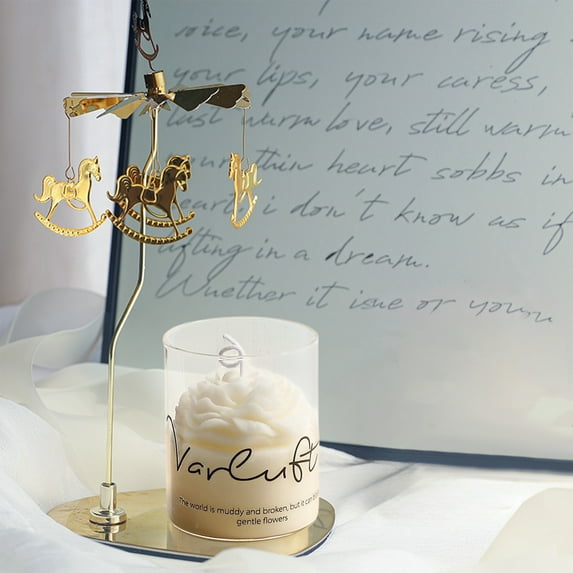 voice, your name rising
your lips, your caress,
last warm love, still warm
your thin heart sobbs in
heart i don't know as if
drifting in a dream.
Whether it is or you
Varluft
The world is muddy and broken, but it can
gentle flowers